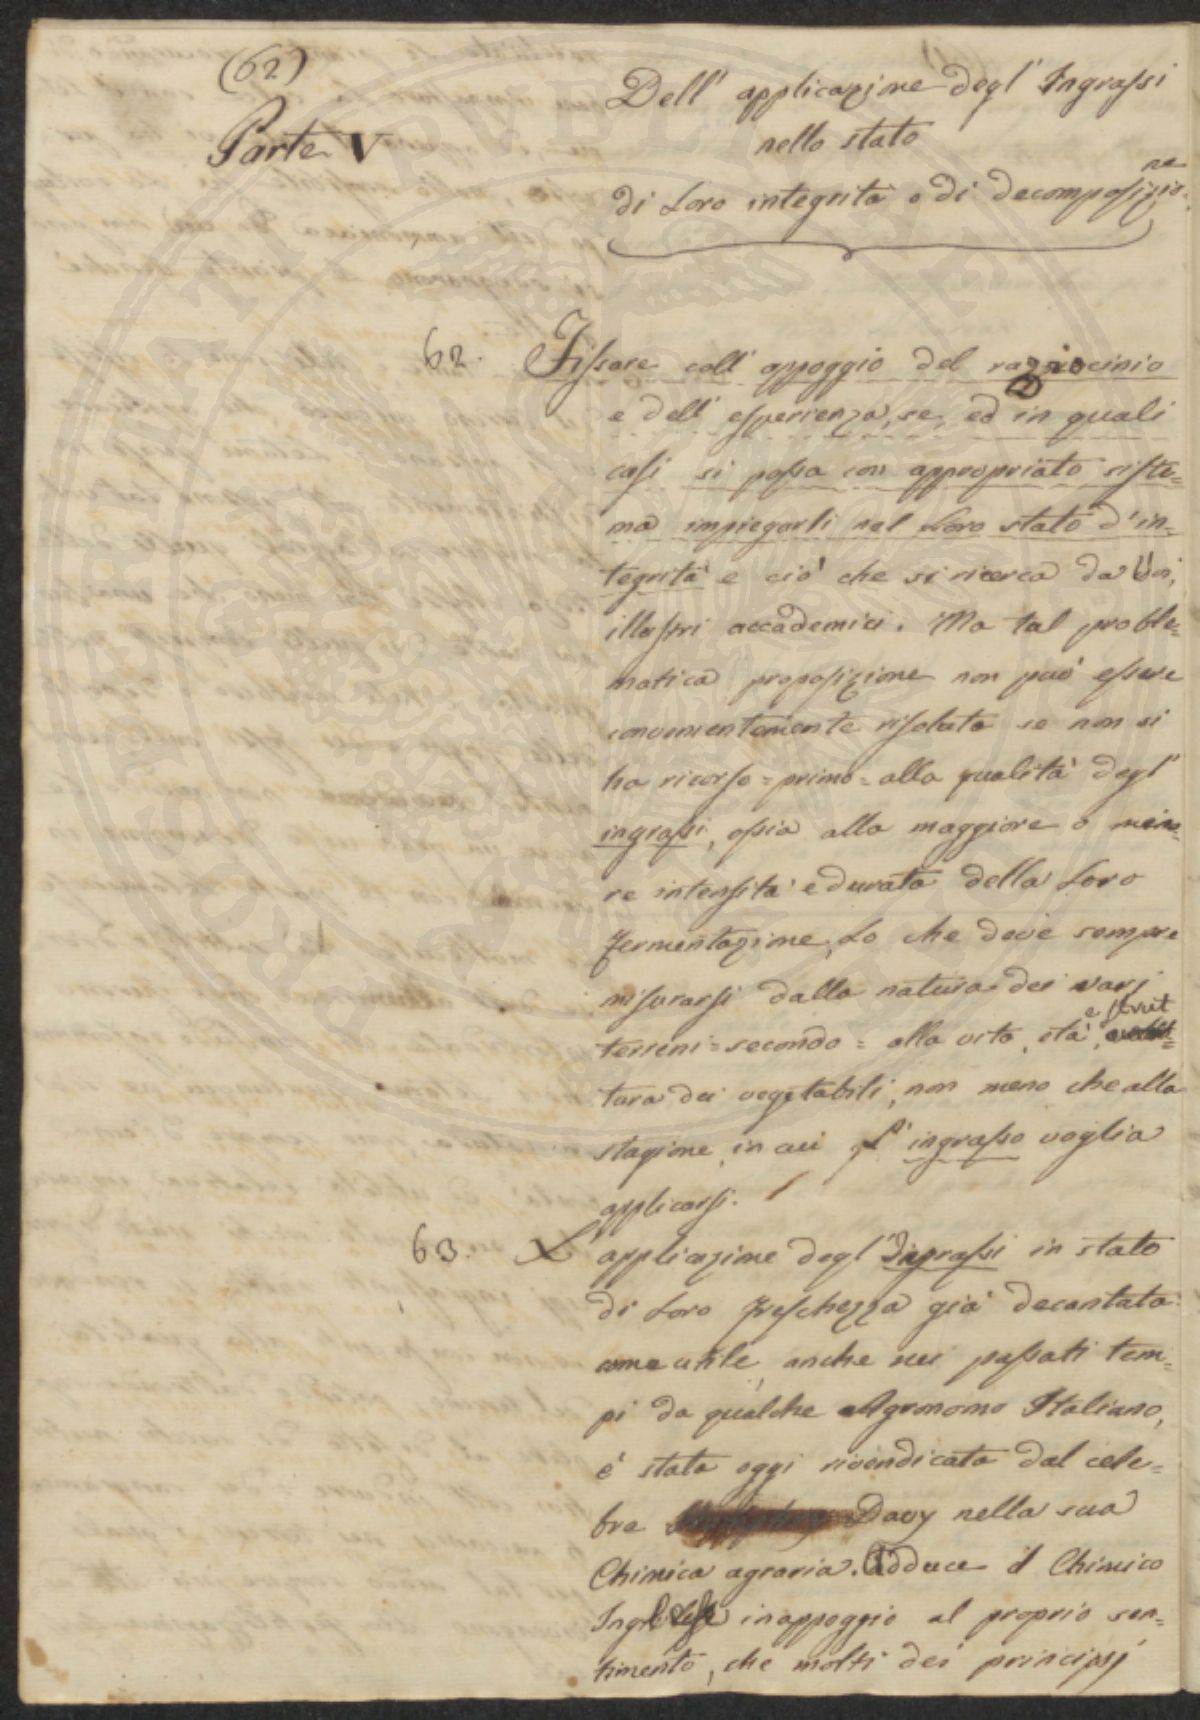 (62)
Parte V
Dell' applicazione degl' Ingrassi
nello stato
di Loro integrità o di decomposizio=
ne
62. Fissare coll' appoggio del raziocinio
e dell' esperienza, se, ed in quali
casi si possa con appropriato siste=
ma impiegarli nel Loro stato d'in=
tegrità e ciò che si ricerca da Voi,
illustri accademici. Ma tal proble=
matica proposizione non può essere
convenientemente risoluta se non si
ha ricorso = primo = alla qualità degl'
ingrassi, ossia alla maggiore o mino=
re intensità e durata della Loro
fermentazione, Lo che deve sempre
misurarsi dalla natura dei varj
terreni = secondo = alla vita, età, e strut=
tura dei vegetabili, non meno che alla
stagione, in cui L' ingrasso voglia
applicarsi.
63. L' applicazione degl' Ingrassi in stato
di Loro freschezza già decantata
come utile, anche nei passati tem=
pi da qualche Agronomo Italiano,
è stata oggi rivendicata dal cele=
bre Davy nella sua
Chimica agraria. Adduce il Chimico
Inglese in appoggio al proprio sen=
timento, che molti dei principj